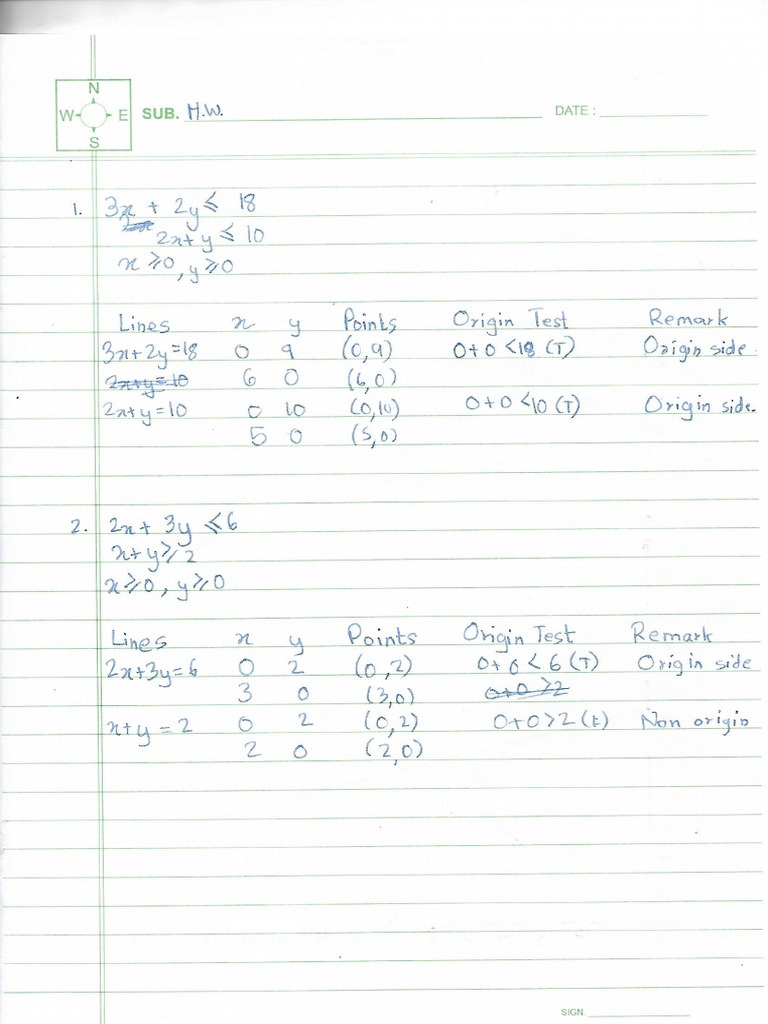 N
W E SUB. H.W. DATE :
S
1. 3x + 2y ≤ 18
2x+y ≤ 10
x ≥0, y ≥0
Lines x y Points Origin Test Remark
3x+2y=18 0 9 (0,9) 0+0 <18 (T) Origin side.
2x+y=10 6 0 (6,0)
2x+y=10 0 10 (0,10) 0+0 <10 (T) Origin side.
5 0 (5,0)
2. 2x+ 3y ≤6
x+y≥2
x≥0, y≥0
Lines x y Points Origin Test Remark
2x+3y=6 0 2 (0,2) 0+0 < 6 (T) Origin side
3 0 (3,0) 0+0 >2
x+y = 2 0 2 (0,2) 0+0>2 (F) Non origin
2 0 (2,0)
SIGN.